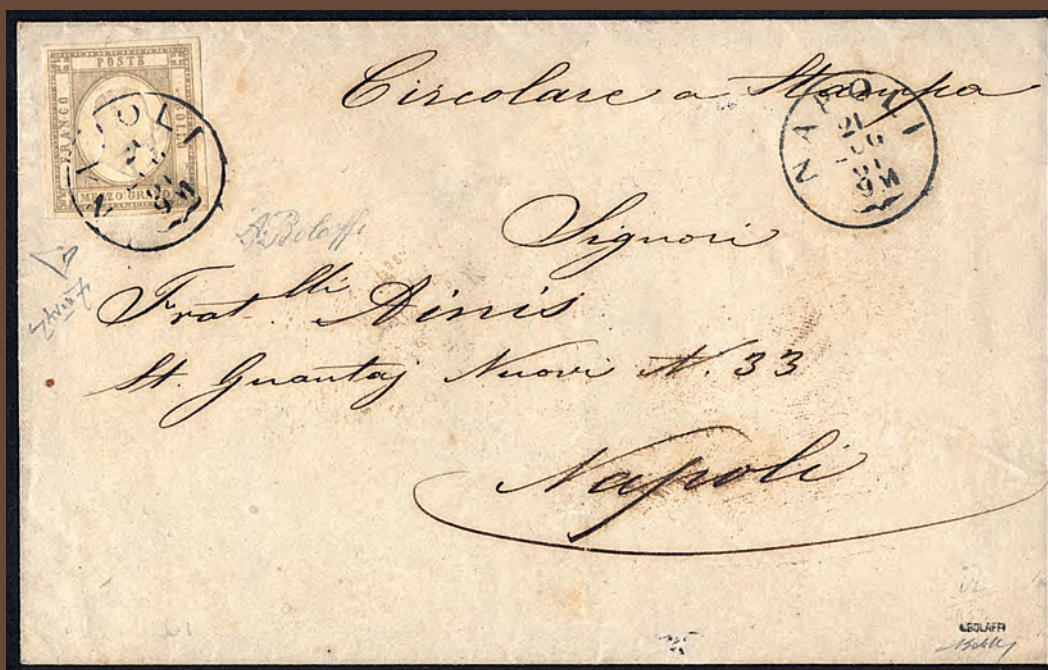 POSTE
FRANCO
BOLLO
MEZZO GRA
NAPOLI
Circolare a Stampa
NAPOLI
21
LUG
61
9M
A. Bolaffi
Signori
Frat.lli Dinis
St. Guantaj Nuovi N. 33
Napoli
A.BOLAFFI